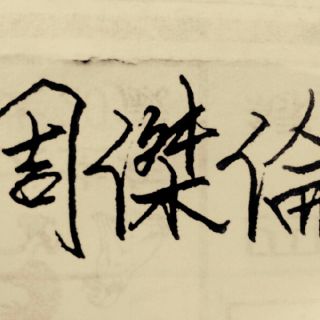 周傑倫